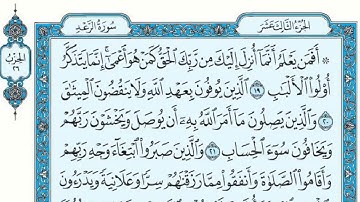 الجزء الثالث عشر
سورة الرعد
الحزب
٢٦
۞ أَفَمَن يَعْلَمُ أَنَّمَا أُنزِلَ إِلَيْكَ مِن رَّبِّكَ الْحَقُّ كَمَنْ هُوَ أَعْمَىٰ إِنَّمَا يَتَذَكَّرُ
أُولُوا الْأَلْبَٰبِ ١٩ الَّذِينَ يُوفُونَ بِعَهْدِ اللَّهِ وَلَا يَنقُضُونَ الْمِيثَٰقَ
٢٠ وَالَّذِينَ يَصِلُونَ مَا أَمَرَ اللَّهُ بِهِ أَن يُوصَلَ وَيَخْشَوْنَ رَبَّهُمْ
وَيَخَافُونَ سُوءَ الْحِسَابِ ٢١ وَالَّذِينَ صَبَرُوا ابْتِغَاءَ وَجْهِ رَبِّهِمْ
وَأَقَامُوا الصَّلَوٰةَ وَأَنفَقُوا مِمَّا رَزَقْنَٰهُمْ سِرًّا وَعَلَانِيَةً وَيَدْرَءُونَ